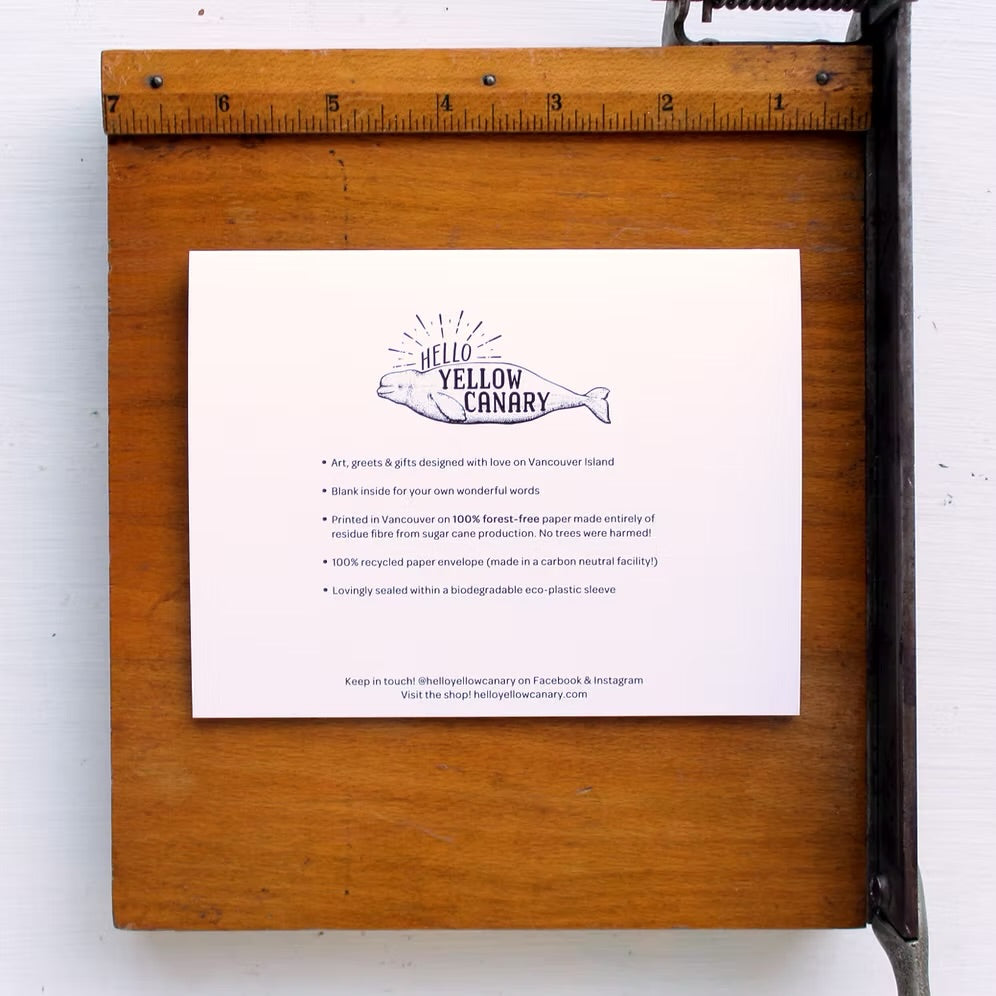 7 6 5 4 3 2 1
HELLO
YELLOW
CANARY
• Art, greets & gifts designed with love on Vancouver Island
• Blank inside for your own wonderful words
• Printed in Vancouver on 100% forest-free paper made entirely of
residue fibre from sugar cane production. No trees were harmed!
• 100% recycled paper envelope (made in a carbon neutral facility!)
• Lovingly sealed within a biodegradable eco-plastic sleeve
Keep in touch! @helloyellowcanary on Facebook & Instagram
Visit the shop! helloyellowcanary.com